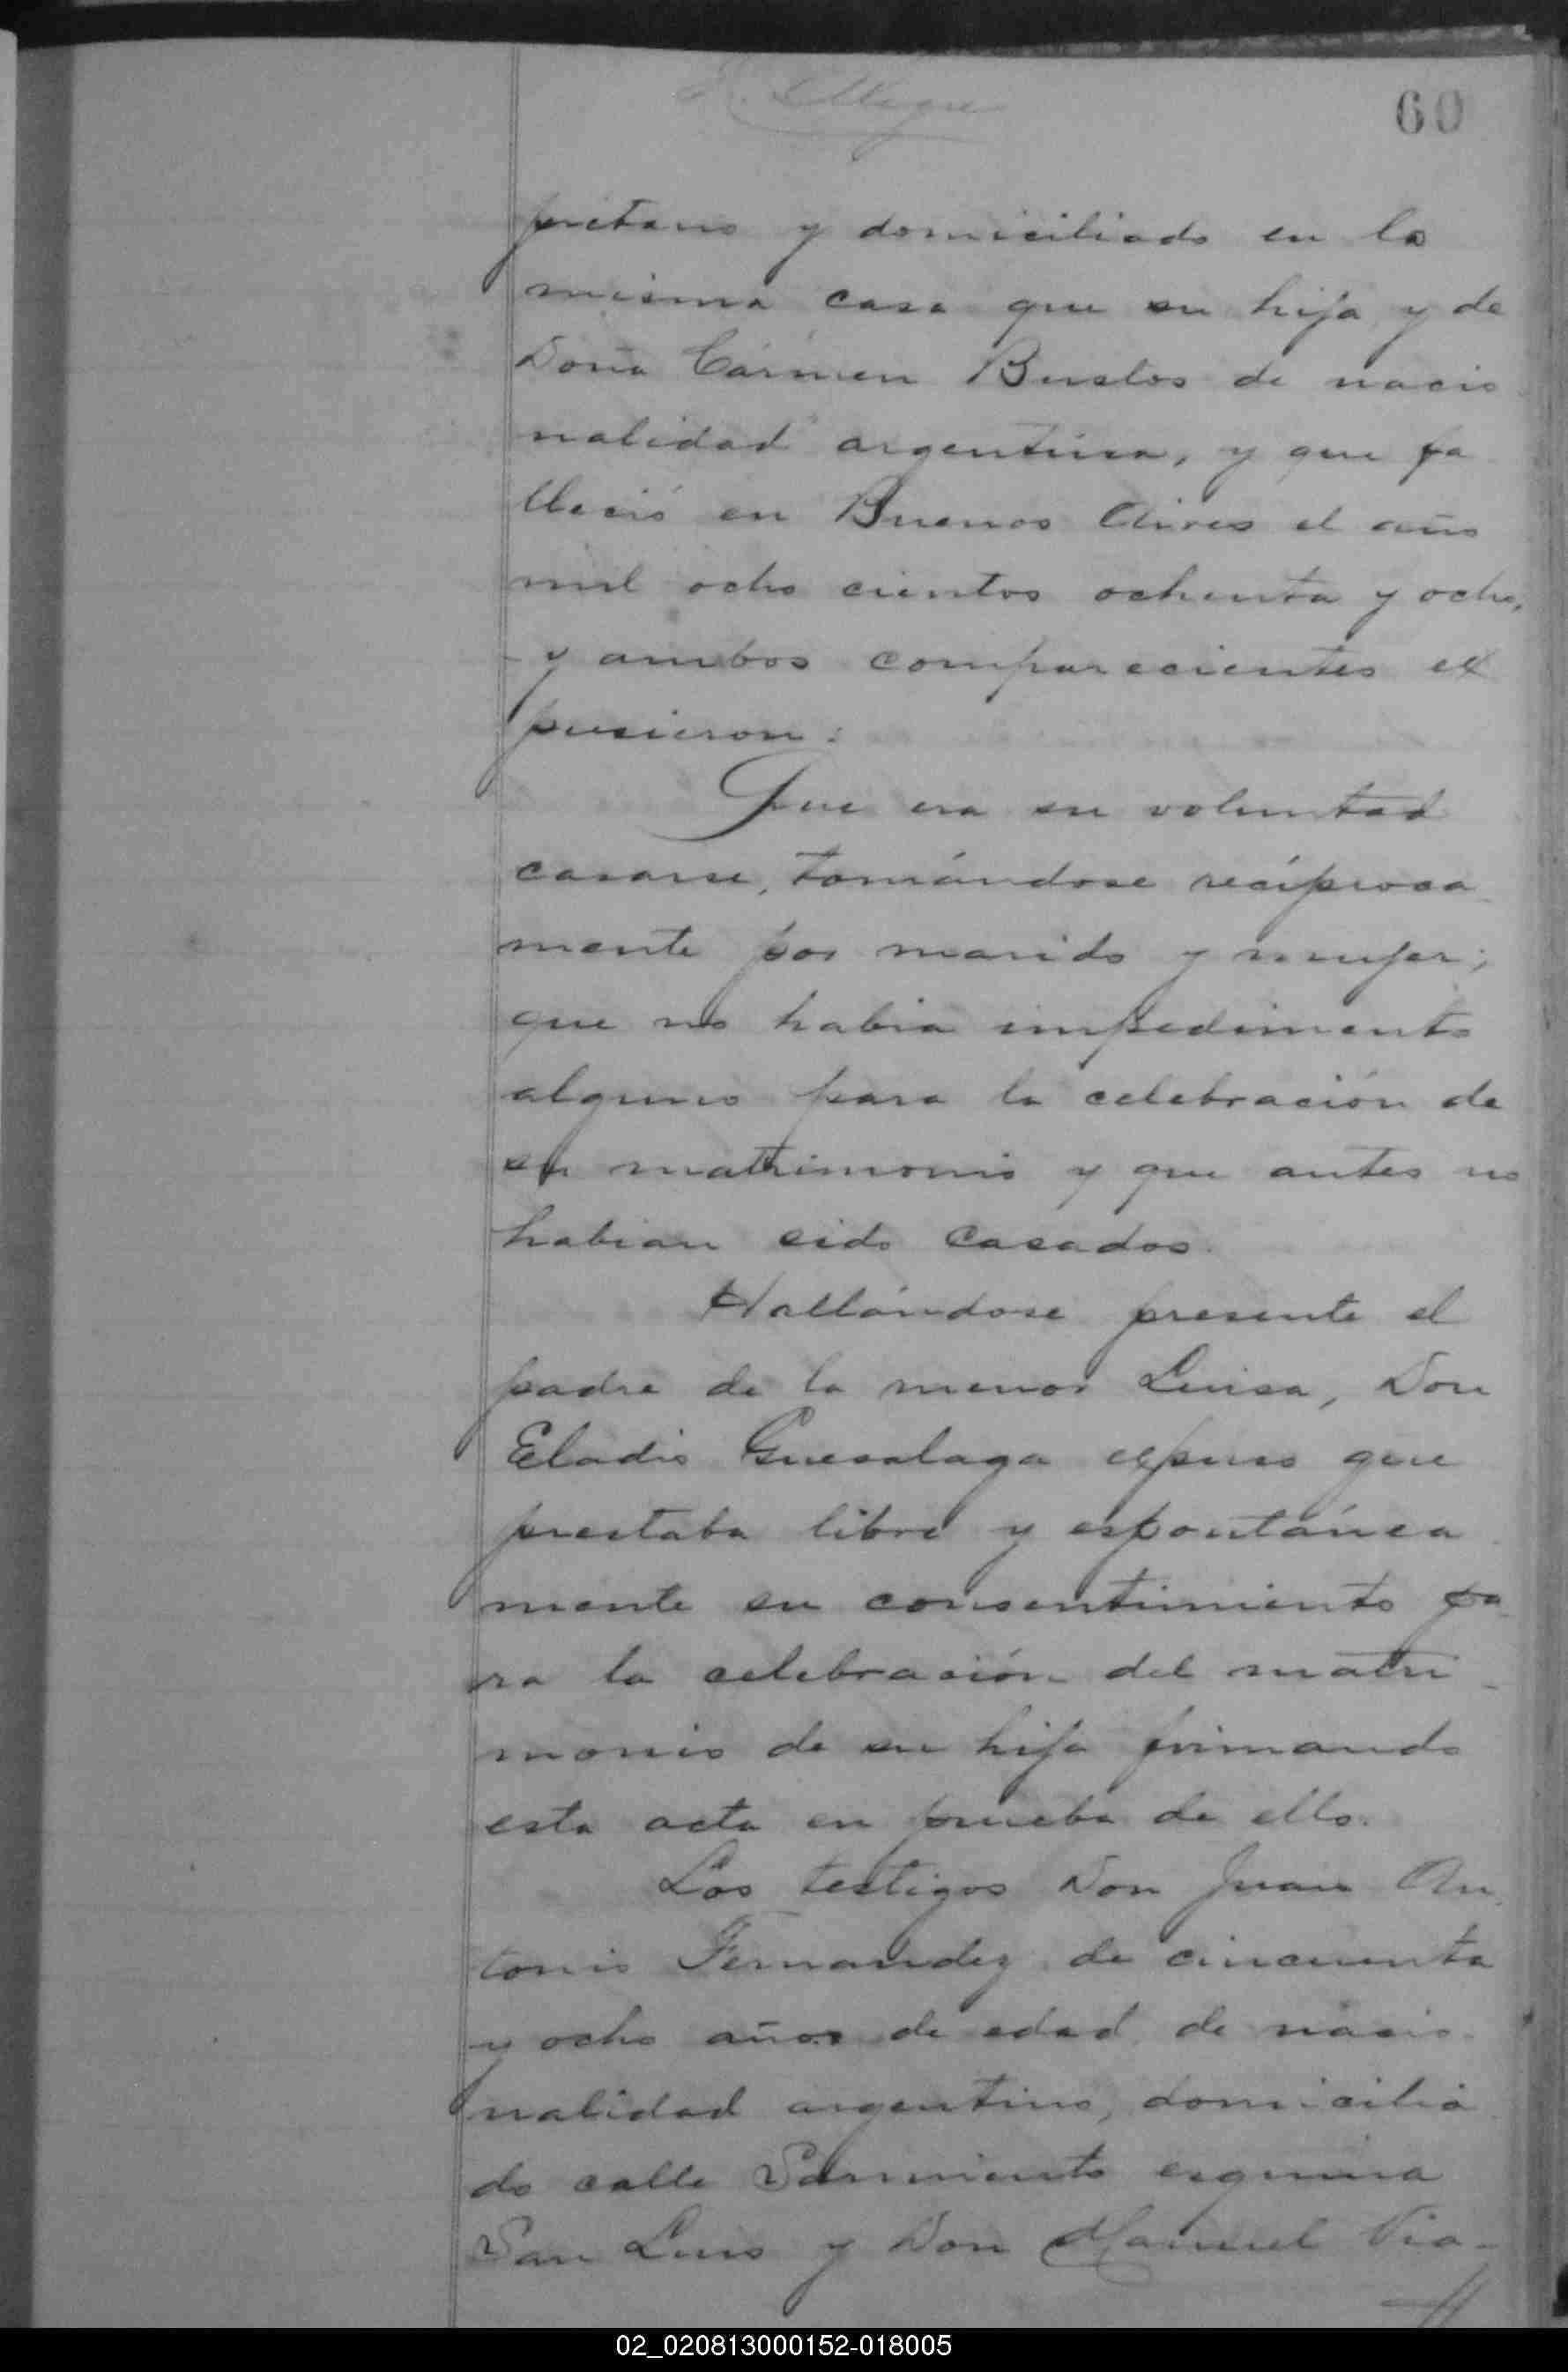 60
pietario y domiciliado en la
misma casa que su hija y de
Doña Cármen Bustos de nacio
nalidad argentina, y que fa
lleció en Buenos Aires el año
mil ocho cientos ochenta y ocho,
y ambos comparecientes ex
pusieron:
Que era su voluntad
casarse, tomándose recíproca
mente por marido y mujer;
que no habia impedimento
alguno para la celebración de
su matrimonio y que antes no
habian sido casados.
Hallándose presente el
padre de la menor Luisa, Don
Eladio Guesalaga expuso que
prestaba libre y espontánea
mente su consentimiento pa
ra la celebración del matri
monio de su hija firmando
esta acta en prueba de ello.
Los testigos Don Juan An
tonio Fernandez de cincuenta
y ocho años de edad de nacio
nalidad argentino, domicilia
do calle Sarmiento esquina
San Luis y Don Manuel Via-
02_020813000152-018005